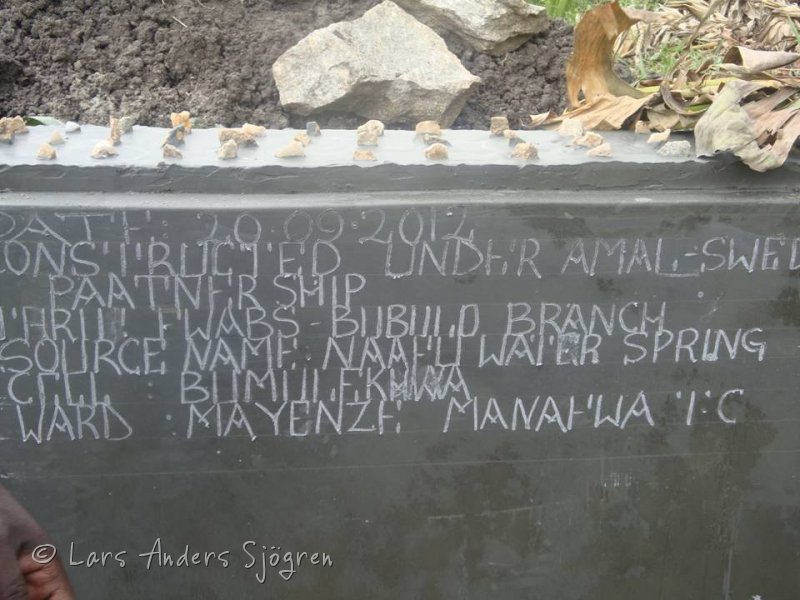 DATE: 20.09.2012
CONSTRUCTED UNDER AMAL-SWED
PAATNERSHIP
FWABS - BUBULO BRANCH
SOURCE NAME NAAFU WATER SPRING
CELL : BUMULEKHWA
WARD : MAYENZE MANAFWA T.C
© Lars Anders Sjögren